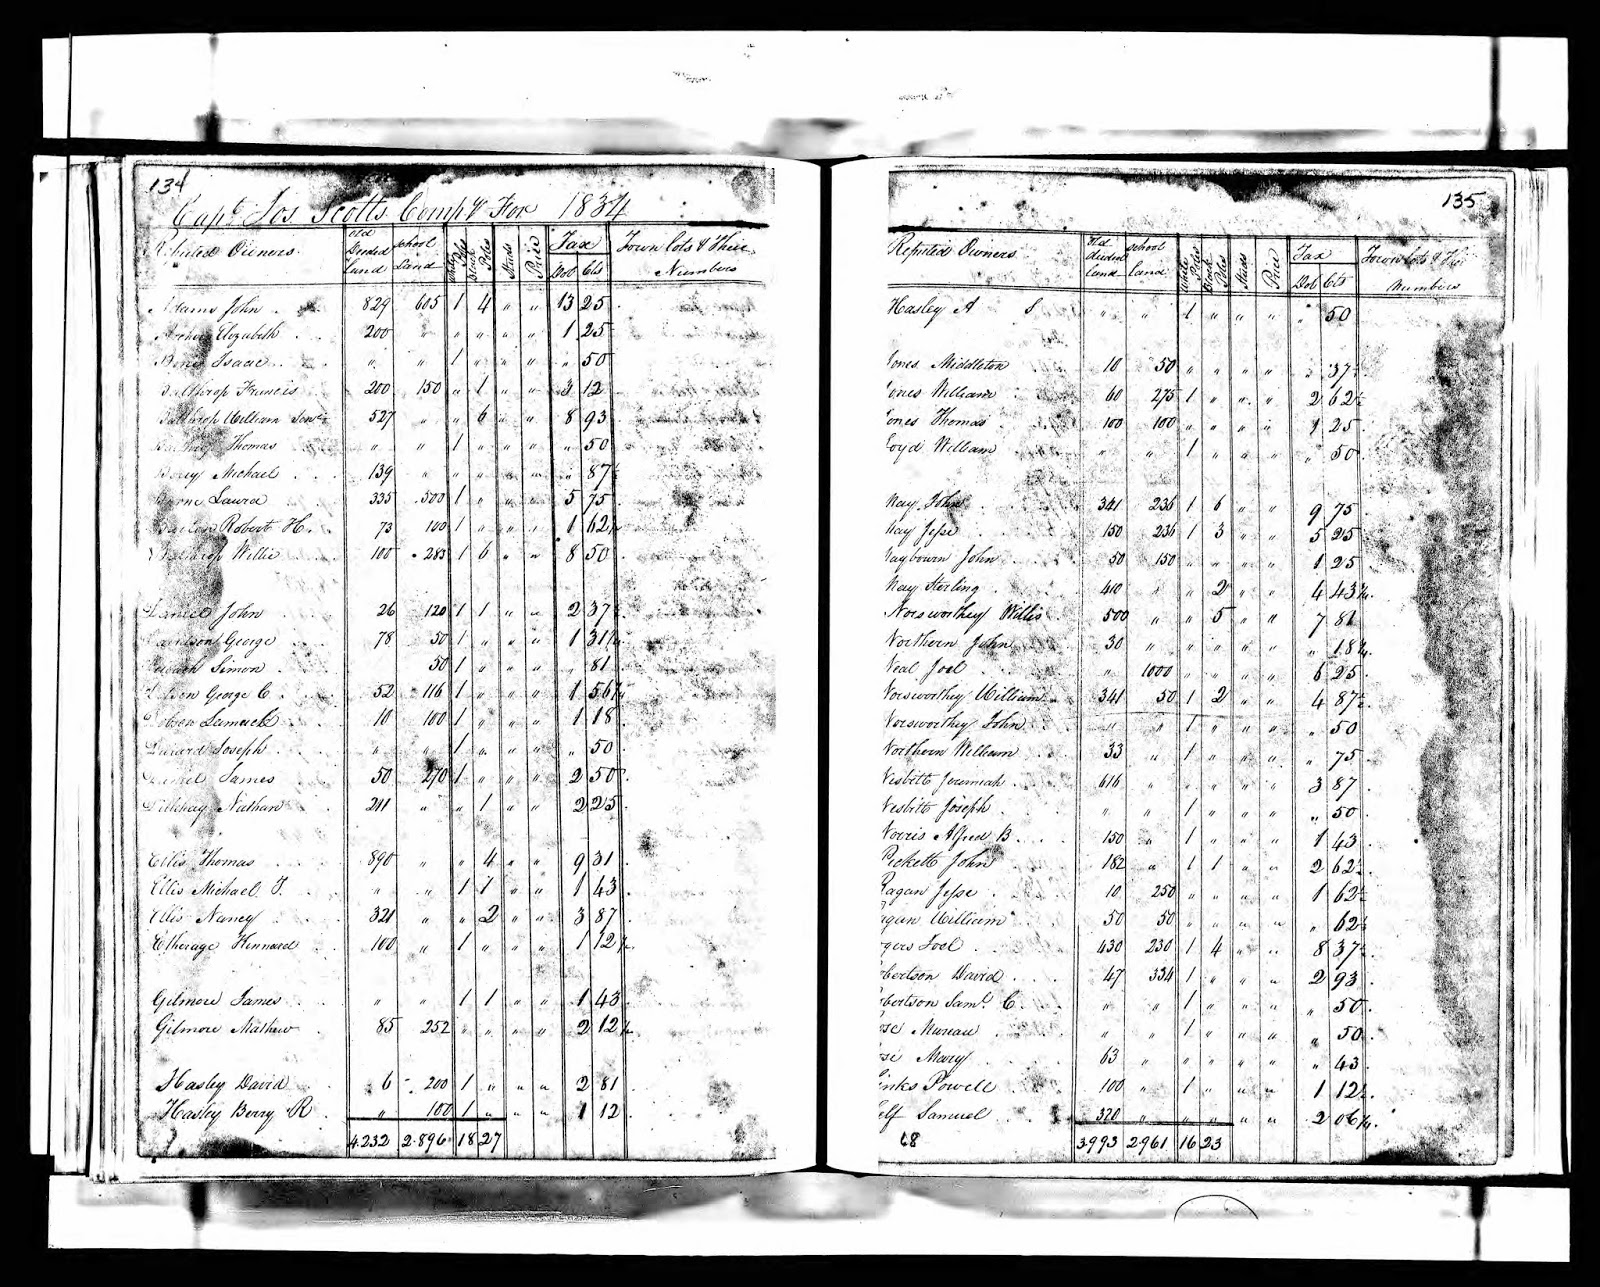 134
Capt Jos Scotts Compy For 1834
Reputed Owners old Deeded Land School Land White Poles Black Poles Studs Price Tax Dol Cts Town lots & Their Numbers
Adams John 829 605 1 4 " " 13 25
Elizabeth 200 " " " " " 1 25
Isaac " " 1 " " " " 50
Balthrop Francis 200 150 " 1 " " 3 12
Balthrop William Senr 527 " " 6 " " 8 93
Thomas " " 1 " " " " 50
Michael 139 " " " " " " 87½
Laura 335 500 1 " " " 5 75
Robert H. 73 100 1 " " " 1 62½
Balthrop Willie 100 283 1 6 " " 8 50
Daniel John 26 120 1 1 " " 2 37½
George 78 50 1 " " " 1 31¼
Simon 50 1 " " " " 81
George C 52 116 1 " " " 1 56¼
Samuel 10 100 1 " " " 1 18
Joseph " " 1 " " " " 50
Daniel James 50 270 1 " " " 2 50
Dillehay Nathan 211 " " 1 " " 2 25
Ellis Thomas 890 " " 4 " " 9 31
Ellis Michael T. " " 1 1 " " 1 43
Ellis Nancy 321 " " 2 " " 3 87
Etherage Kennard 100 " 1 " " " 1 12½
Gilmore James " " 1 1 " " 1 43
Gilmore Mathew 85 252 " " " " 2 12½
Hasley David 6 200 1 " " " 2 81
Hasley Berry R " 100 1 " " " 1 12
4232 2896 18 27
135
Reputed Owners Old deeded Land School Land White Poles Black Poles Studs Price Tax Dol Cts Town lots & Their Numbers
Hasley A S " " 1 " " " " 50
Jones Middleton 10 50 " " " " " 37½
Jones William 60 275 1 " " " 2 62½
Jones Thomas 100 100 " " " " 1 25
Loyd William " " 1 " " " " 50
May John 341 236 1 6 " " 9 75
May Jesse 150 236 1 3 " " 5 25
John 50 150 " " " " 1 25
May Sterling 410 " " 2 " " 4 43¾
Norsworthey Willis 500 " " 5 " " 7 81
Northern John 30 " " " " " " 18¾
Neal Joel " 1000 " " " " 6 25
Norsworthey William 341 50 1 2 " " 4 87½
Norsworthey John " " 1 " " " " 50
Northern William 33 " 1 " " " " 75
Nesbitt Jeremiah 616 " " " " " 3 87
Nesbitt Joseph " " 1 " " " " 50
Norris Alfred B. 150 " 1 " " " 1 43
Pickett John 182 " 1 1 " " 2 62½
Ragan Jesse 10 250 " " " " 1 62½
Ragan William 50 50 " " " " " 62½
Rogers Joel 430 230 1 4 " " 8 37½
Robertson David 47 334 1 " " " 2 93
Robertson Saml C. " " 1 " " " " 50
" " 1 " " " " 50
Mary 63 " " " " " " 43
Powell 100 " 1 " " " 1 12½
Samuel 320 " " " " " 2 06¼
68 3993 2961 16 23